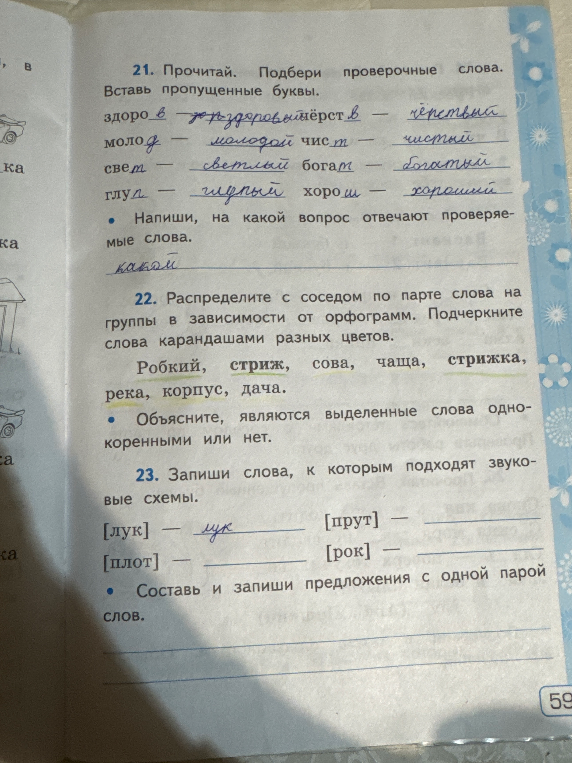 , в
21. Прочитай. Подбери проверочные слова.
Вставь пропущенные буквы.
здоров — здоровый чёрств — чёрствый
молод — молодой чист — чистый
свет — светлый богат — богатый
глуп — глупый хорош — хороший
• Напиши, на какой вопрос отвечают проверяе-
мые слова.
какой
22. Распределите с соседом по парте слова на
группы в зависимости от орфограмм. Подчеркните
слова карандашами разных цветов.
Робкий, стриж, сова, чаща, стрижка,
река, корпус, дача.
• Объясните, являются выделенные слова одно-
коренными или нет.
23. Запиши слова, к которым подходят звуко-
вые схемы.
[лук] — лук [прут] —
[плот] — [рок] —
• Составь и запиши предложения с одной парой
слов.
59
ка
ка
а
ка